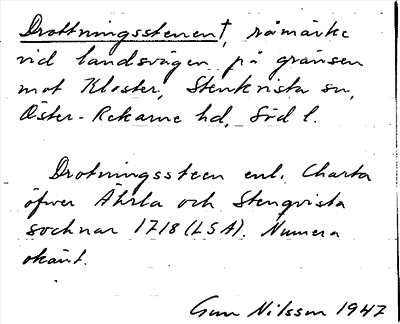 Drottningsstenen†, råmärke
vid landsvägen på gränsen
mot Kloster, Stenkvista sn,
Öster-Rekarne hd, Söd l.
Drotningssteen enl. Charta
öfwer Ährla och Stenqvista
socknar 1718 (LSA). Numera
okänt.
Gun Nilsson 1947